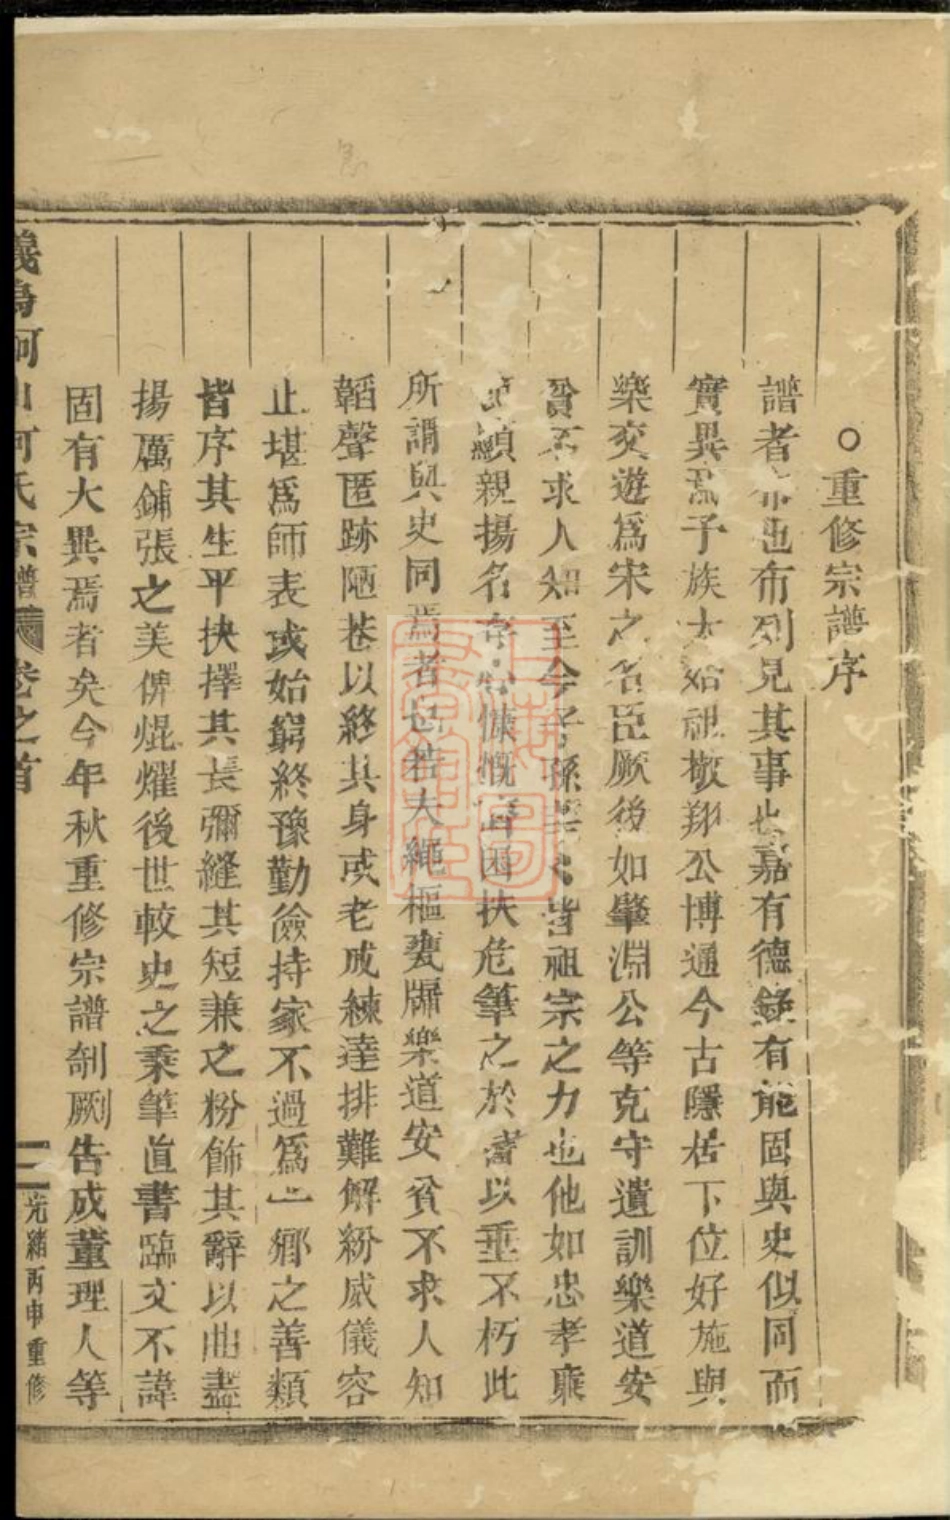 ○重修宗譜序
譜者布也布列見其事也嘉有德錄有能固與史似同而
實異焉子族太始祖敬翔公博通今古隱居下位好施與
樂交遊爲宋之名臣厥後如肇淵公等克守遺訓樂道安
貧不求人知至今子孫皆祖宗之力也他如忠孝兼
顯親揚名慷慨扶危筆之於書以垂不朽此
所謂與史同焉者也若夫繩樞甕牖樂道安貧不求人知
韜聲匿跡陋巷以終其身或老成練達排難解紛威儀容
止堪爲師表或始窮終豫勤儉持家不過爲一鄉之善類
皆序其生平抉擇其長彌縫其短兼之粉飾其辭以曲盡
揚厲鋪張之美俾焜燿後世較史之秉筆直書臨文不諱
固有大異焉者矣今年秋重修宗譜剞劂告成董理人等
義烏河山何氏宗譜 卷之首 二 光緒丙申重修